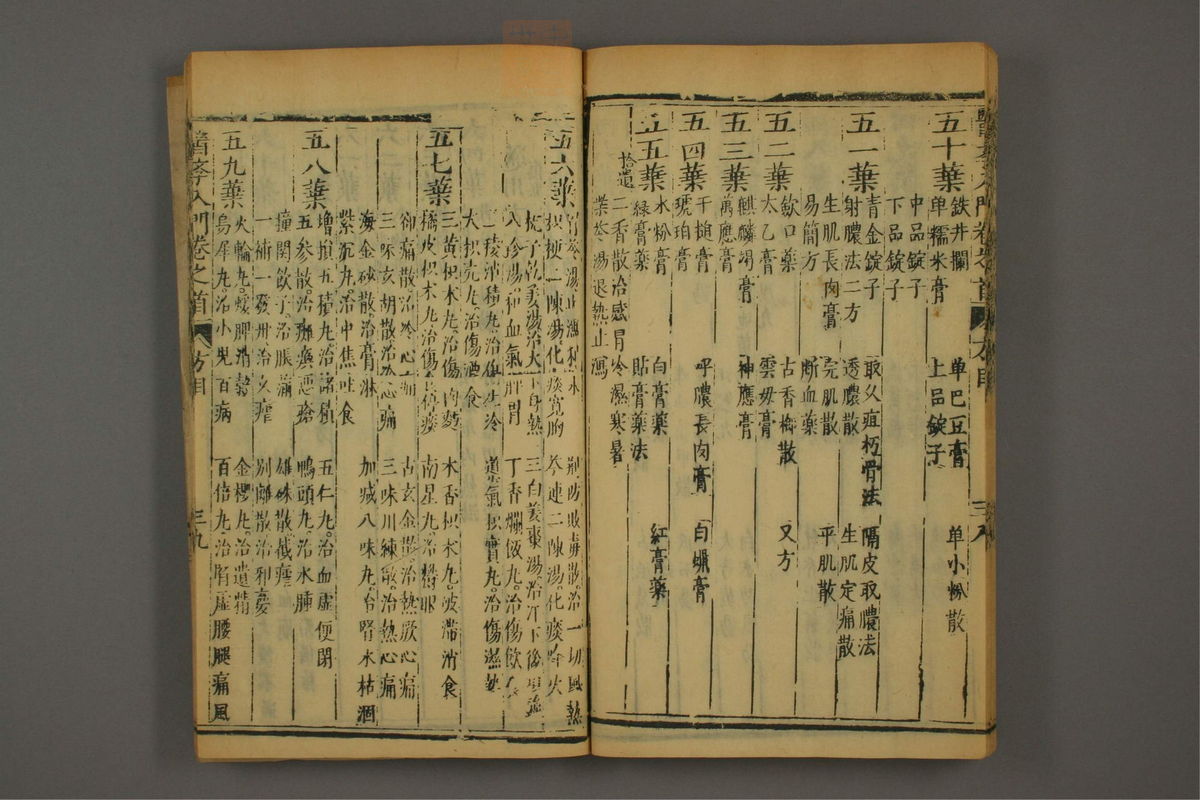 醫李入門卷之首 方目 三八
五十葉 鉄井欄 单巴豆膏 单小粉散
单糯米膏 上品錠子
中品錠子
下品錠子
青金錠子 取久疽朽骨法 隔皮取膿法
五一葉 射膿法二方 透膿散 生肌定痛散
生肌長肉膏 完肌散 平肌散
易簡方 断血藥
五二葉 欽口藥 古香梅散 又方
太乙膏 雲毋膏
五三葉 麒麟竭膏 神應膏
萬應膏
五四葉 千搥膏 呼膿長肉膏 白蠟膏
琥珀膏
五五葉 水粉膏 白膏藥 紅膏藥
緑膏藥 貼膏藥法
拾遺 二香散治感冒冷濕寒暑
柴苓湯退熱止瀉
五六葉 荆防敗毒散治一切風熱
枳梗二陳湯化痰寬胸 芩連二陳湯化痰降火
梔子乾姜湯治大下身熱 三白姜棗湯治汗下後
人參湯和血氣開胃 丁香爛飯丸治傷飲食
三稜消積丸治傷生冷 導氣枳實丸治傷濕熱
大枳壳丸治傷酒食
五七葉 三黄枳术丸治傷肉麪 木香枳术丸破滯消食
橘皮枳术丸治傷 南星丸治
却痛散治冷心痛 古玄金散治熱厥心痛
三味玄胡散治心痛 三味川練散治熱心痛
海金砂散治膏淋 加减八味丸治腎水枯涸
紫沉丸治中焦吐食
五八葉 增損五積丸治諸積 五仁丸治血虛便閉
五參散治癩瘼惡瘡 鴨頭丸治水腫
撞関飲子治脹滿 雄硃散截瘧
一補一發丹治久瘧 别離散治邪夢
五九葉 火輪丸煖脾消穀 金櫻丸治遺精
烏犀丸治小児百病 百倍丸治腎虛腰腿痛風
醫李入門卷之首 方目 三九